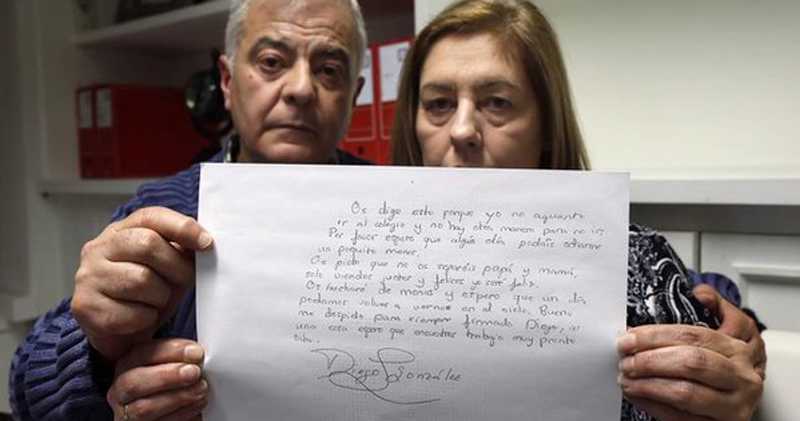 Os digo esto porque yo no aguanto
ir al colegio y no hay otra manera para no ir
Por favor espero que algún día podáis odiarme
un poquito menos.
Os pido que no os separéis papá y mamá,
solo viendoos juntos y felices yo seré feliz.
Os echaré de menos y espero que un día
podamos volver a vernos en el cielo. Bueno
me despido para siempre firmado Diego, a
una cosa espero que encuentres trabajo muy pronto
Diego González